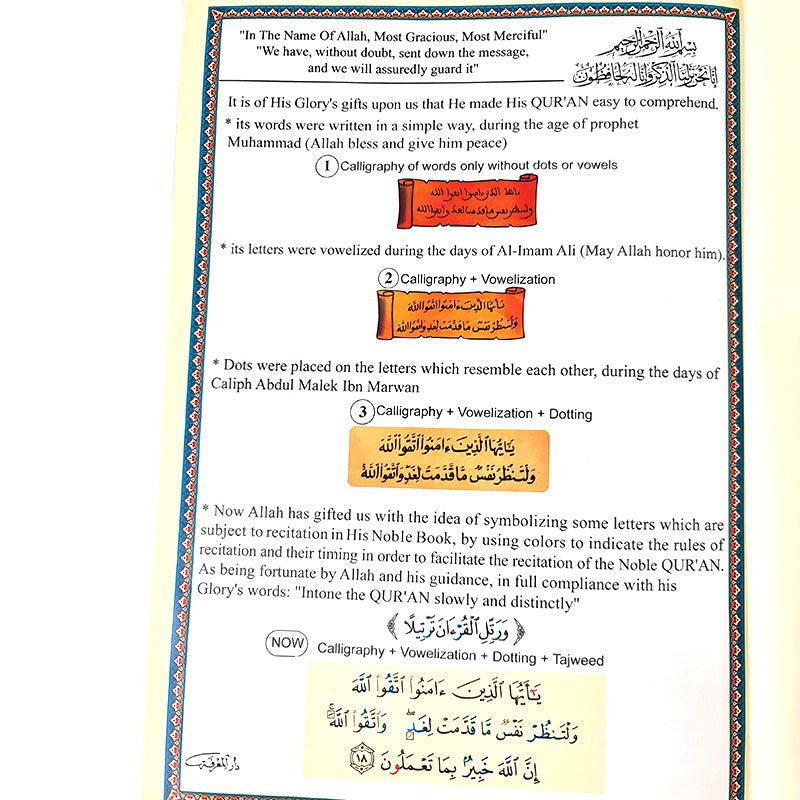 "In The Name Of Allah, Most Gracious, Most Merciful"
"We have, without doubt, sent down the message,
and we will assuredly guard it"
بِسْمِ اللَّهِ الرَّحْمٰنِ الرَّحِيمِ
إِنَّا نَحْنُ نَزَّلْنَا الذِّكْرَ وَإِنَّا لَهُ لَحَافِظُونَ
It is of His Glory's gifts upon us that He made His QUR'AN easy to comprehend.
* its words were written in a simple way, during the age of prophet
Muhammad (Allah bless and give him peace)
1 Calligraphy of words only without dots or vowels
* its letters were vowelized during the days of Al-Imam Ali (May Allah honor him).
2 Calligraphy + Vowelization
يَٰأَيُّهَا ٱلَّذِينَ ءَامَنُوا ٱتَّقُوا ٱللَّهَ
وَلْتَنظُرْ نَفْسٌ مَّا قَدَّمَتْ لِغَدٍ وَٱتَّقُوا ٱللَّهَ
* Dots were placed on the letters which resemble each other, during the days of
Caliph Abdul Malek Ibn Marwan
3 Calligraphy + Vowelization + Dotting
يَٰأَيُّهَا ٱلَّذِينَ ءَامَنُوا ٱتَّقُوا ٱللَّهَ
وَلْتَنظُرْ نَفْسٌ مَّا قَدَّمَتْ لِغَدٍ وَٱتَّقُوا ٱللَّهَ
* Now Allah has gifted us with the idea of symbolizing some letters which are
subject to recitation in His Noble Book, by using colors to indicate the rules of
recitation and their timing in order to facilitate the recitation of the Noble QUR'AN.
As being fortunate by Allah and his guidance, in full compliance with his
Glory's words: "Intone the QUR'AN slowly and distinctly"
﴿وَرَتِّلِ ٱلْقُرْءَانَ تَرْتِيلًا﴾
NOW Calligraphy + Vowelization + Dotting + Tajweed
يَٰٓأَيُّهَا ٱلَّذِينَ ءَامَنُوا۟ ٱتَّقُوا۟ ٱللَّهَ
وَلْتَنظُرْ نَفْسٌ مَّا قَدَّمَتْ لِغَدٍ ۖ وَٱتَّقُوا۟ ٱللَّهَ ۚ
إِنَّ ٱللَّهَ خَبِيرٌۢ بِمَا تَعْمَلُونَ ١٨
دار المعرفة